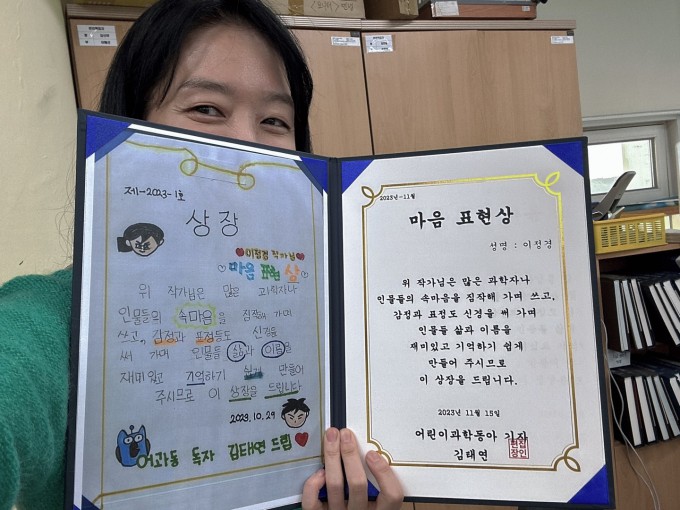 제1-2023-1호
상장
이정경 작가님
마음 표현 상
위 작가님은 많은 과학자나
인물들의 속마음을 짐작해 가며
쓰고, 감정과 표정들도 신경을
써 가며 인물들 삶과 이름을
재미있고 기억하기 쉽게 만들어
주시므로 이 상장을 드립니다
2023.10.29
어과동 독자 김태연 드림
2023년-11월
마음 표현상
성명 : 이정경
위 작가님은 많은 과학자나
인물들의 속마음을 짐작해 가며 쓰고,
감정과 표정도 신경을 써 가며
인물들 삶과 이름을
재미있고 기억하기 쉽게
만들어 주시므로
이 상장을 드립니다.
2023년 11월 15일
어린이과학동아 기자
김태연
편집
장인